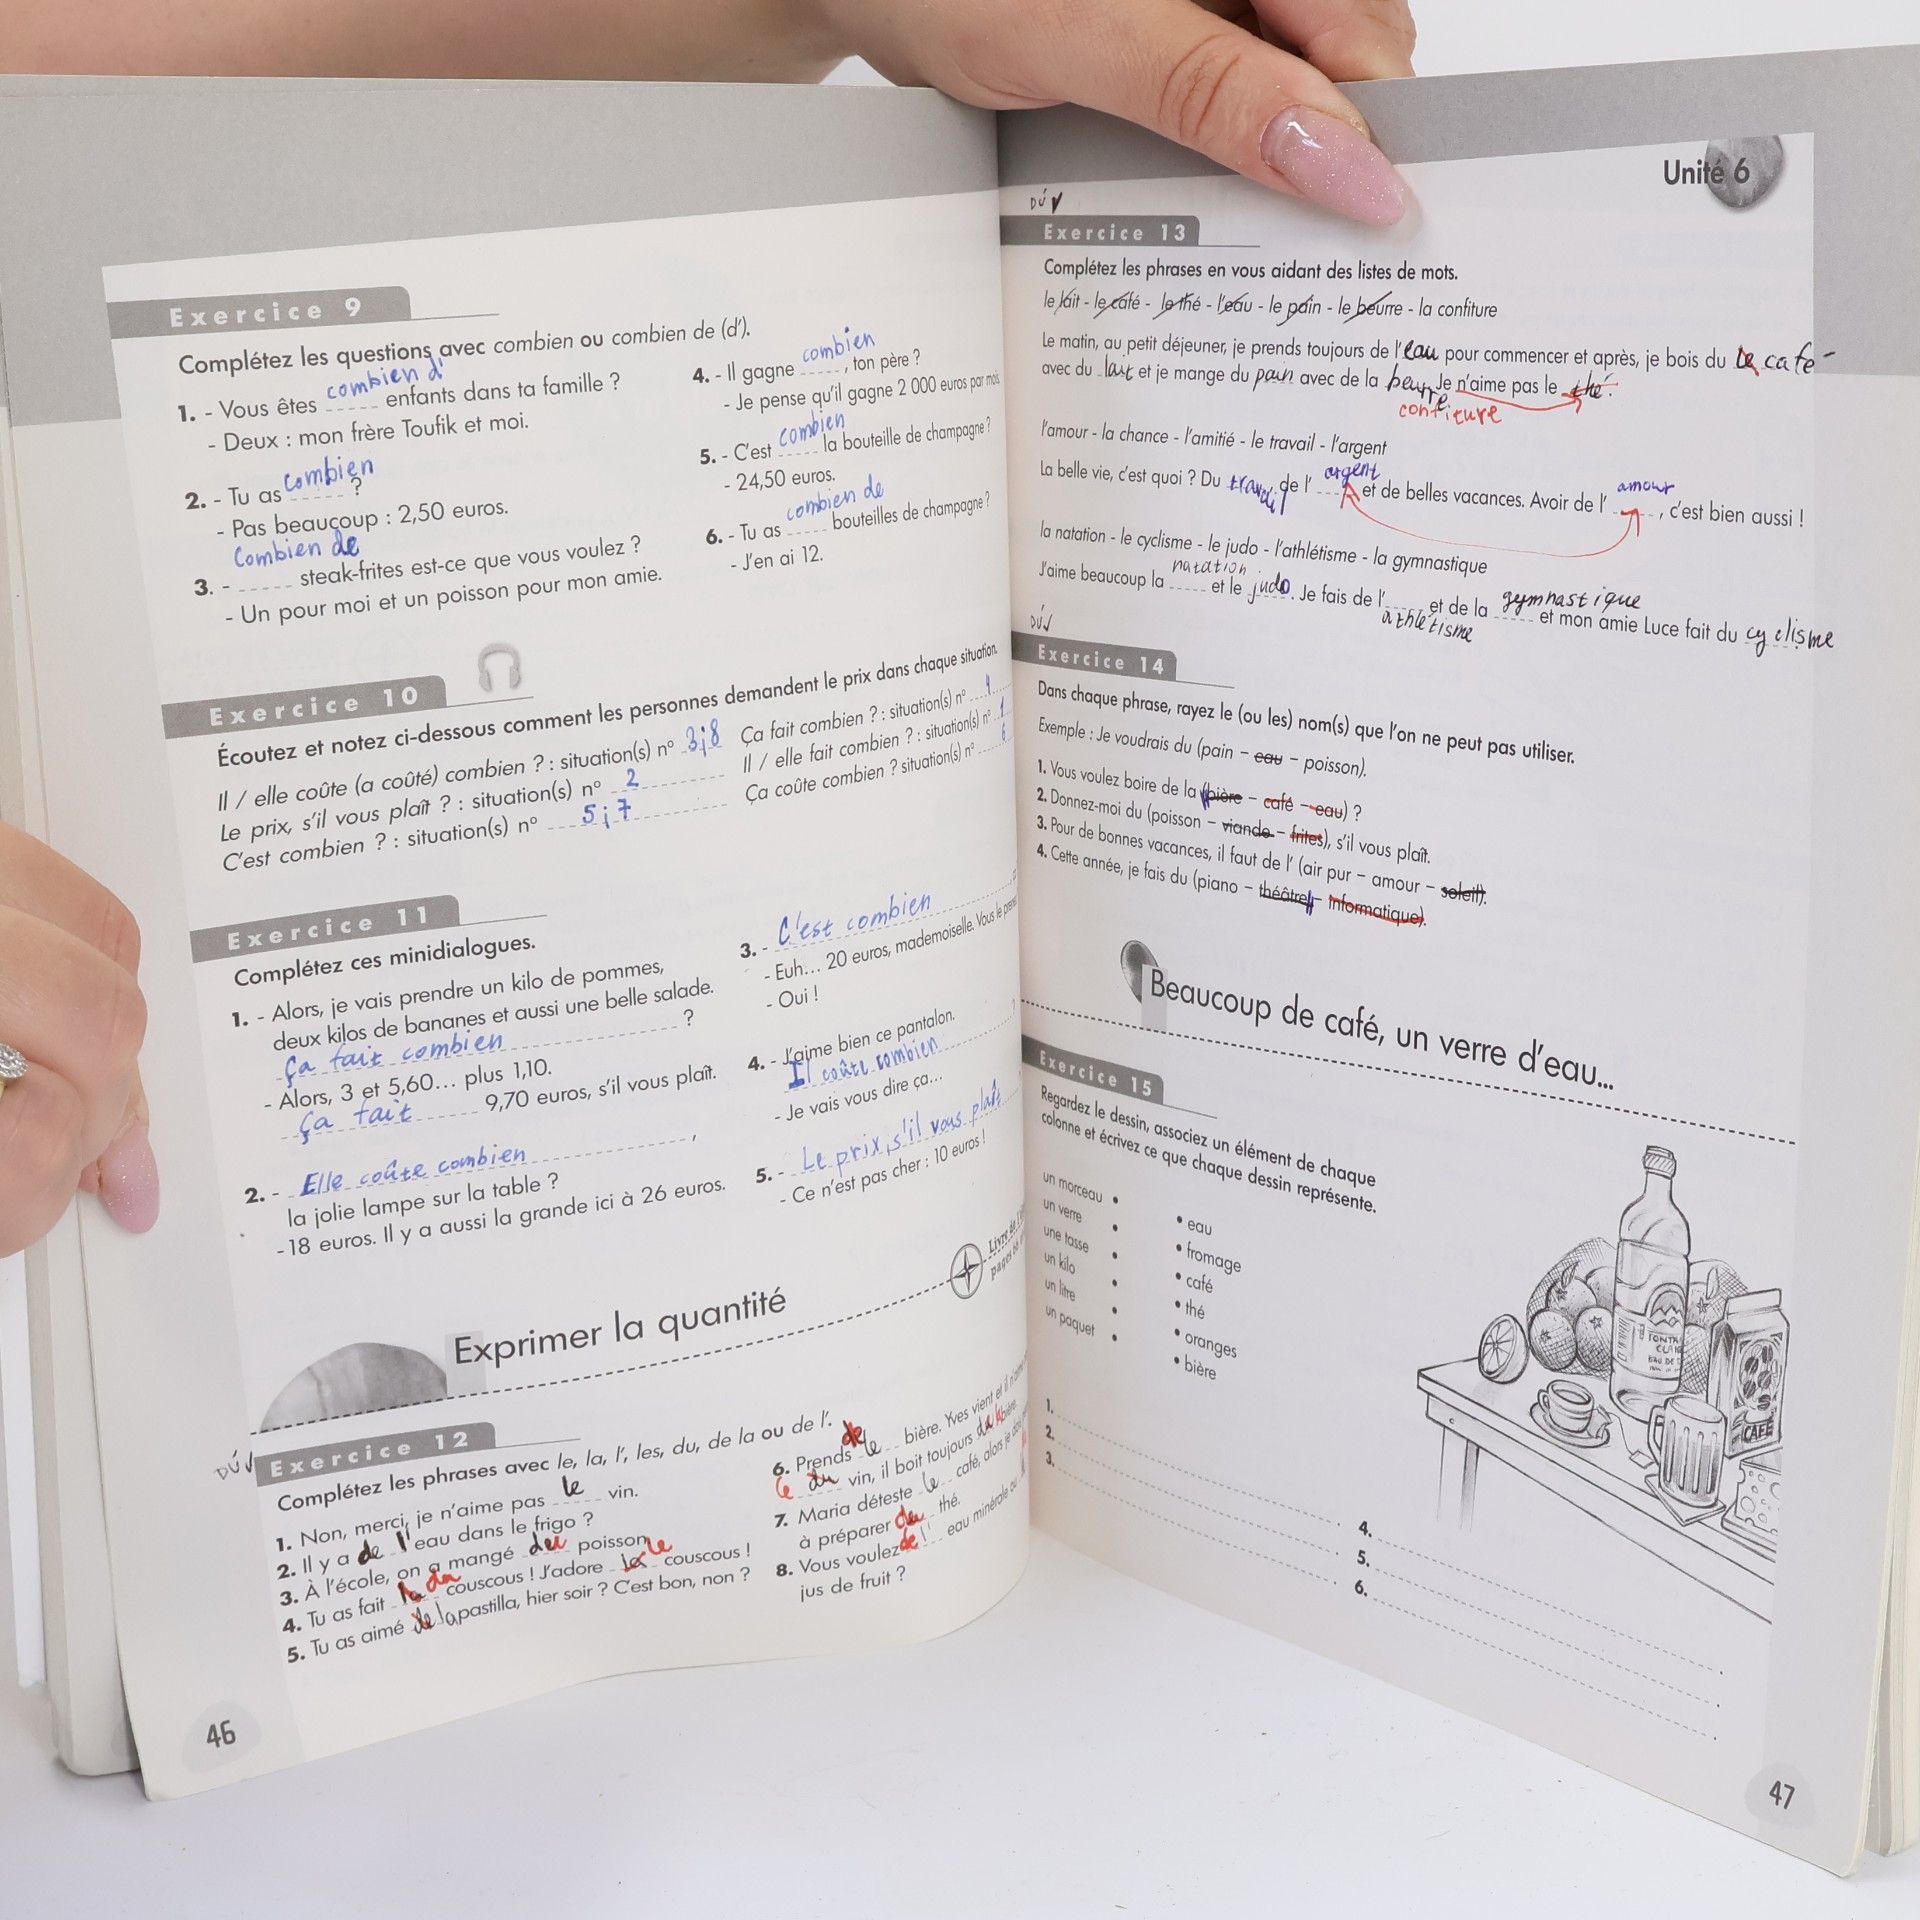 Exercice 9
Complétez les questions avec combien ou combien de (d').
1. - Vous êtes combien d' enfants dans ta famille ?
- Deux : mon frère Toufik et moi.
2. - Tu as combien ?
- Pas beaucoup : 2,50 euros.
3. - Combien de steak-frites est-ce que vous voulez ?
- Un pour moi et un poisson pour mon amie.
4. - Il gagne combien, ton père ?
- Je pense qu'il gagne 2 000 euros par mois.
5. - C'est combien la bouteille de champagne ?
- 24,50 euros.
6. - Tu as combien de bouteilles de champagne ?
- J'en ai 12.
Exercice 10
Écoutez et notez ci-dessous comment les personnes demandent le prix dans chaque situation.
Il / elle coûte (a coûté) combien ? : situation(s) n° 3;8
Le prix, s'il vous plaît ? : situation(s) n° 2
C'est combien ? : situation(s) n° 5;7
Ça fait combien ? : situation(s) n° 4
Il / elle fait combien ? : situation(s) n° 1
Ça coûte combien ? situation(s) n° 6
Exercice 11
Complétez ces minidialogues.
1. - Alors, je vais prendre un kilo de pommes,
deux kilos de bananes et aussi une belle salade.
Ça fait combien ?
- Alors, 3 et 5,60... plus 1,10.
Ça fait 9,70 euros, s'il vous plaît.
2. - Elle coûte combien ,
la jolie lampe sur la table ?
- 18 euros. Il y a aussi la grande ici à 26 euros.
3. - C'est combien
- Euh... 20 euros, mademoiselle. Vous le
- Oui !
4. - J'aime bien ce pantalon.
Il coûte combien ?
- Je vais vous dire ça...
5. - Le prix, s'il vous plaît
- Ce n'est pas cher : 10 euros !
Livre de
pages
Exprimer la quantité
DÚ√
Exercice 12
Complétez les phrases avec le, la, l', les, du, de la ou de l'.
1. Non, merci, je n'aime pas le vin.
2. Il y a de l'eau dans le frigo ?
3. À l'école, on a mangé du poisson.
4. Tu as fait la du couscous ! J'adore la le couscous !
5. Tu as aimé de la pastilla, hier soir ? C'est bon, non ?
6. Prends de le bière. Yves vient et il
le du vin, il boit toujours de la bière.
7. Maria déteste le café, alors je dois
à préparer du thé.
8. Vous voulez de l' eau minérale ou
jus de fruit ?
46
Unité 6
DÚ√
Exercice 13
Complétez les phrases en vous aidant des listes de mots.
le lait - le café - le thé - l'eau - le pain - le beurre - la confiture
Le matin, au petit déjeuner, je prends toujours de l'eau pour commencer et après, je bois du le café
avec du lait et je mange du pain avec de la beurre. Je n'aime pas le thé.
confiture
l'amour - la chance - l'amitié - le travail - l'argent
La belle vie, c'est quoi ? Du travail, de l' argent et de belles vacances. Avoir de l' amour, c'est bien aussi !
la natation - le cyclisme - le judo - l'athlétisme - la gymnastique
J'aime beaucoup la natation et le judo. Je fais de l'athlétisme et de la gymnastique et mon amie Luce fait du cyclisme
DÚ√
Exercice 14
Dans chaque phrase, rayez le (ou les) nom(s) que l'on ne peut pas utiliser.
Exemple : Je voudrais du (pain – eau – poisson).
1. Vous voulez boire de la (bière – café – eau) ?
2. Donnez-moi du (poisson – viande – frites), s'il vous plaît.
3. Pour de bonnes vacances, il faut de l' (air pur – amour – soleil).
4. Cette année, je fais du (piano – théâtre – informatique).
Beaucoup de café, un verre d'eau...
Exercice 15
Regardez le dessin, associez un élément de chaque
colonne et écrivez ce que chaque dessin représente.
un morceau •
un verre •
une tasse •
un kilo •
un litre •
un paquet •
• eau
• fromage
• café
• thé
• oranges
• bière
CAFÉ
1.
2.
3.
4.
5.
6.
47